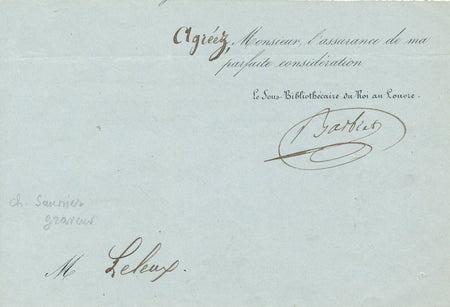 Agréez, Monsieur, l'assurance de ma
parfaite considération
Le Sous-Bibliothécaire du Roi au Louvre.
Barbier
ch. Saunier
graveur
M Leleux.